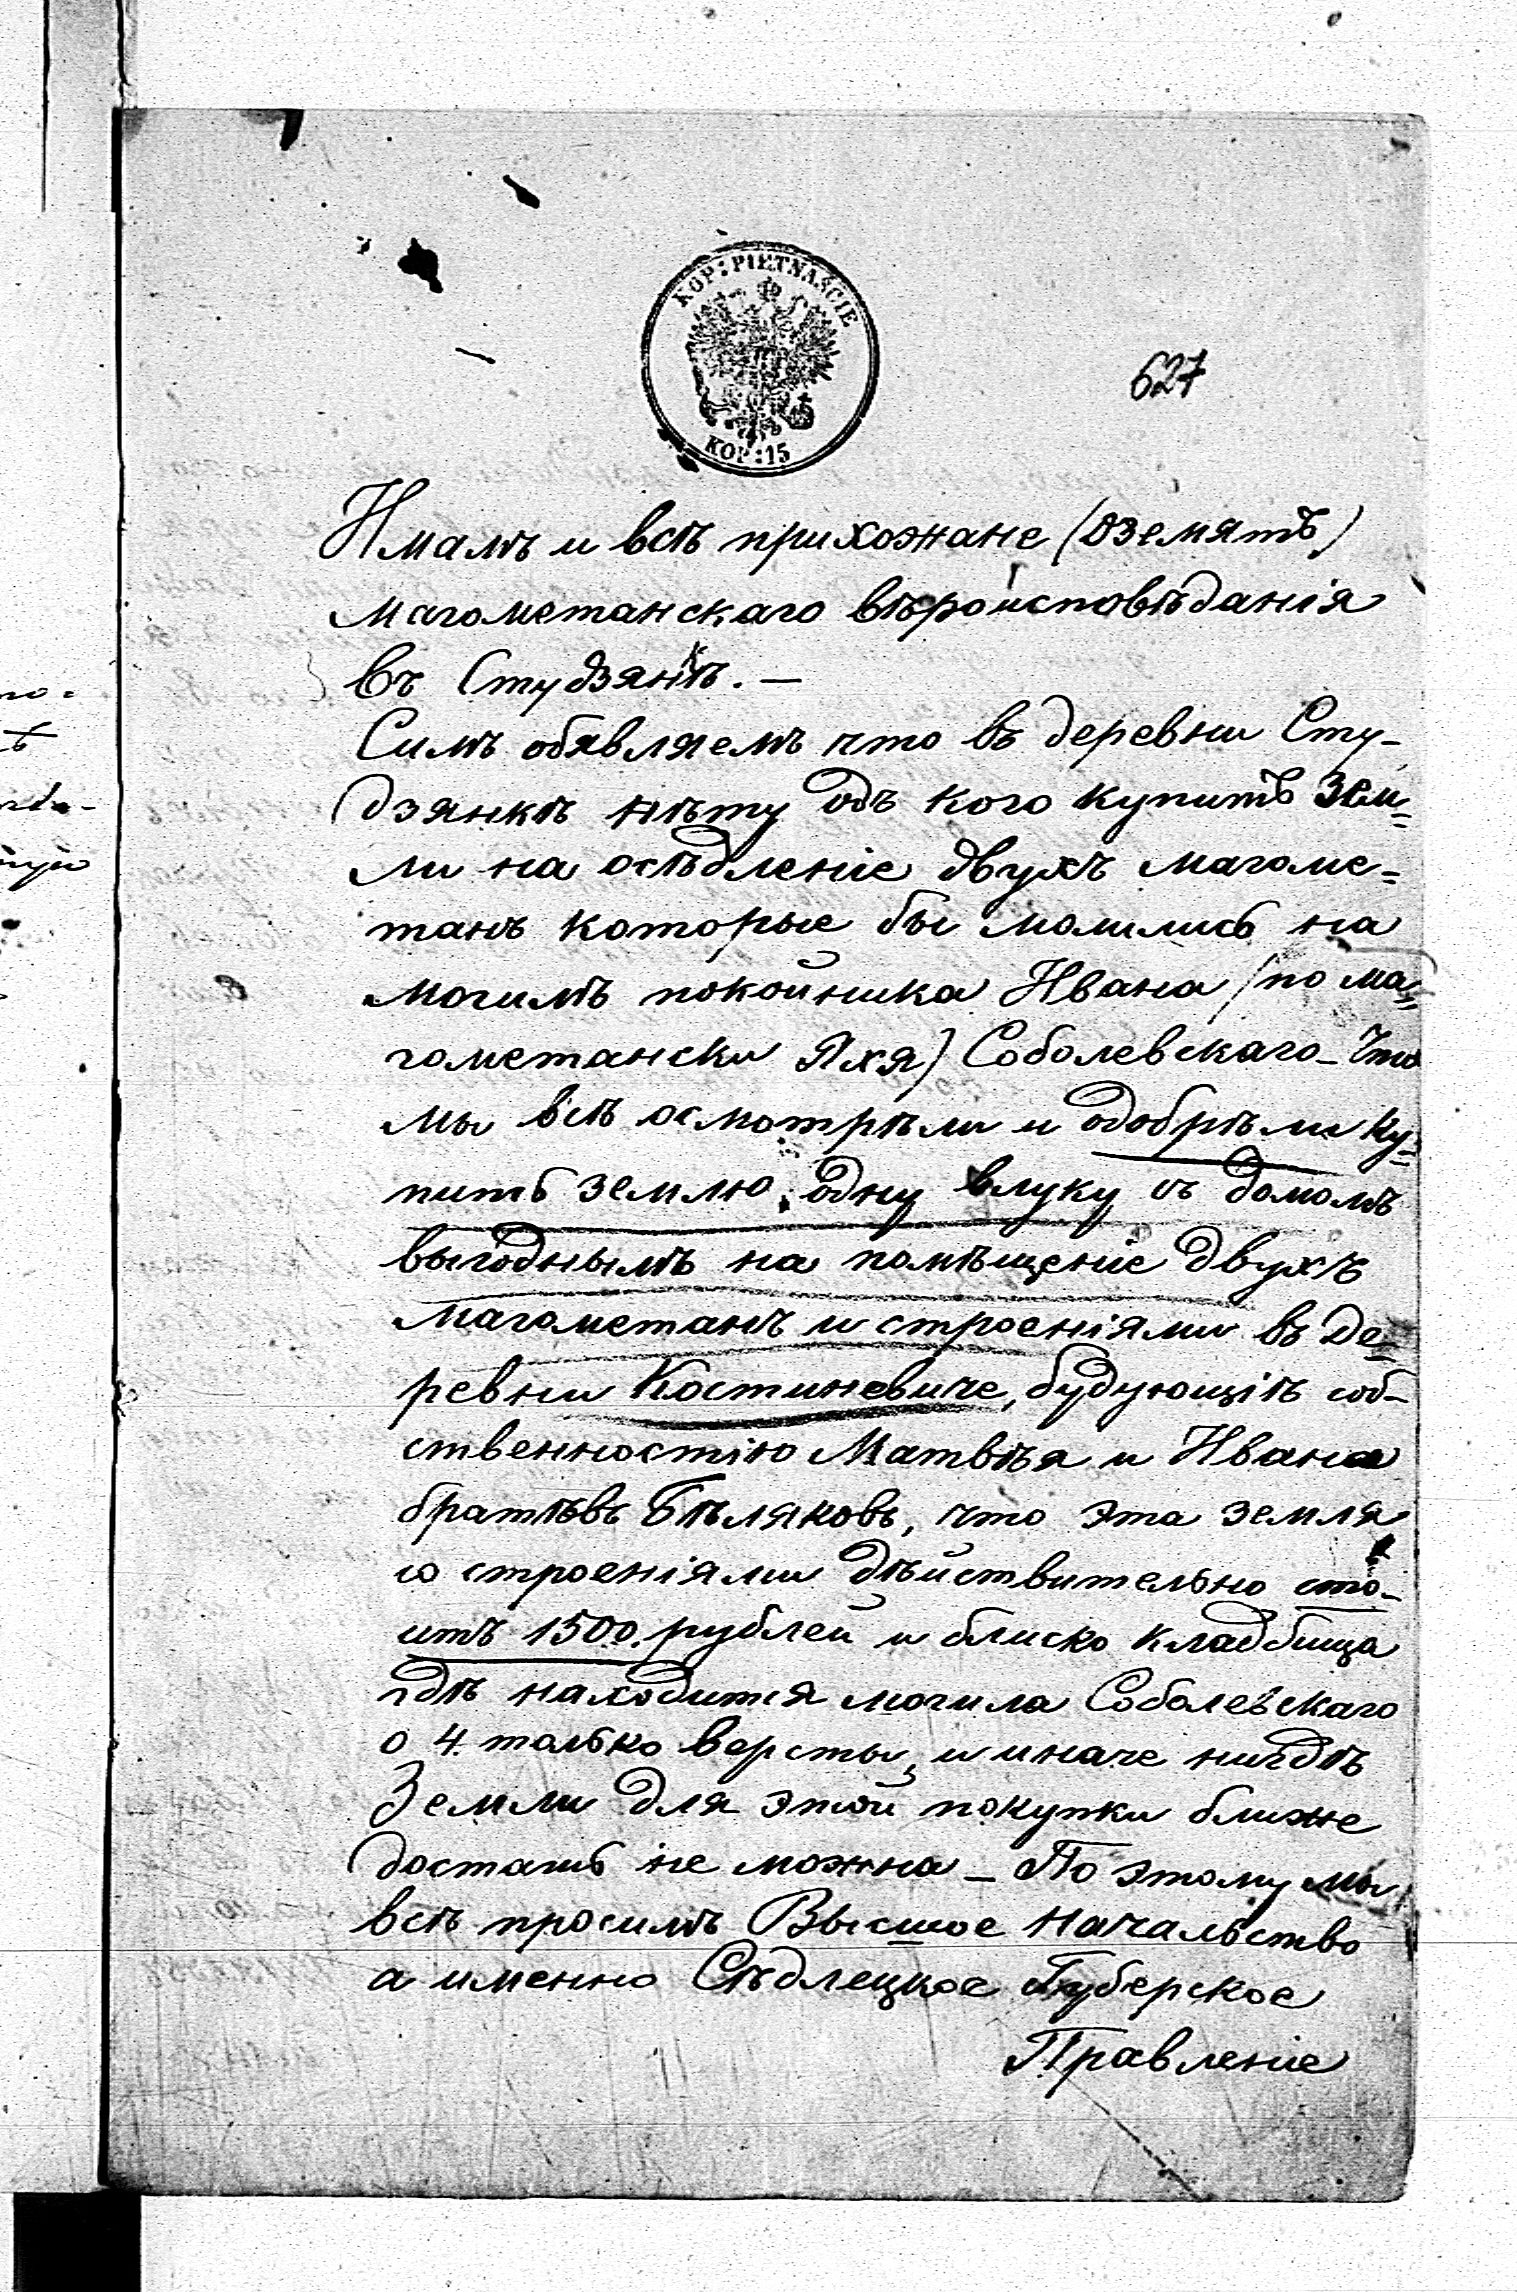 KOP: PIĘTNAŚCIE
KOP: 15
627
Имамъ и всѣ прихожане (Дземятъ)
магометанскаго вѣроисповѣданія
въ Студзянкѣ. —
Симъ обявляемъ что въ деревни Сту-
дзянкѣ нѣту одъ кого купить Зем=
ли на осѣдленіе двухъ магоме=
танъ которые бы молились на
могилѣ покойника Ивана (по ма=
гометански Яхя) Соболевскаго – Что
мы всѣ осмотрѣли и одобрѣли ку=
пить землю, одну влуку съ домомъ
выгоднымъ на помѣщеніе двухъ
магометанъ и строеніями въ де=
ревни Костиневиче, будующіѣ соб-
ственностію Матвѣя и Ивана
братѣвъ Бѣляковъ, что эта земля
со строеніями дѣйствительно сто-
итъ 1500. рублей и блиско кладбища
гдѣ находится могила Соболевскаго
о 4. только версты, и иначе нигдѣ
Земли для этой покупки ближе
достать не можна – По этому мы
всѣ просимъ Высшое Начальство
а именно Сѣдлецкое Губерское
Правленіе